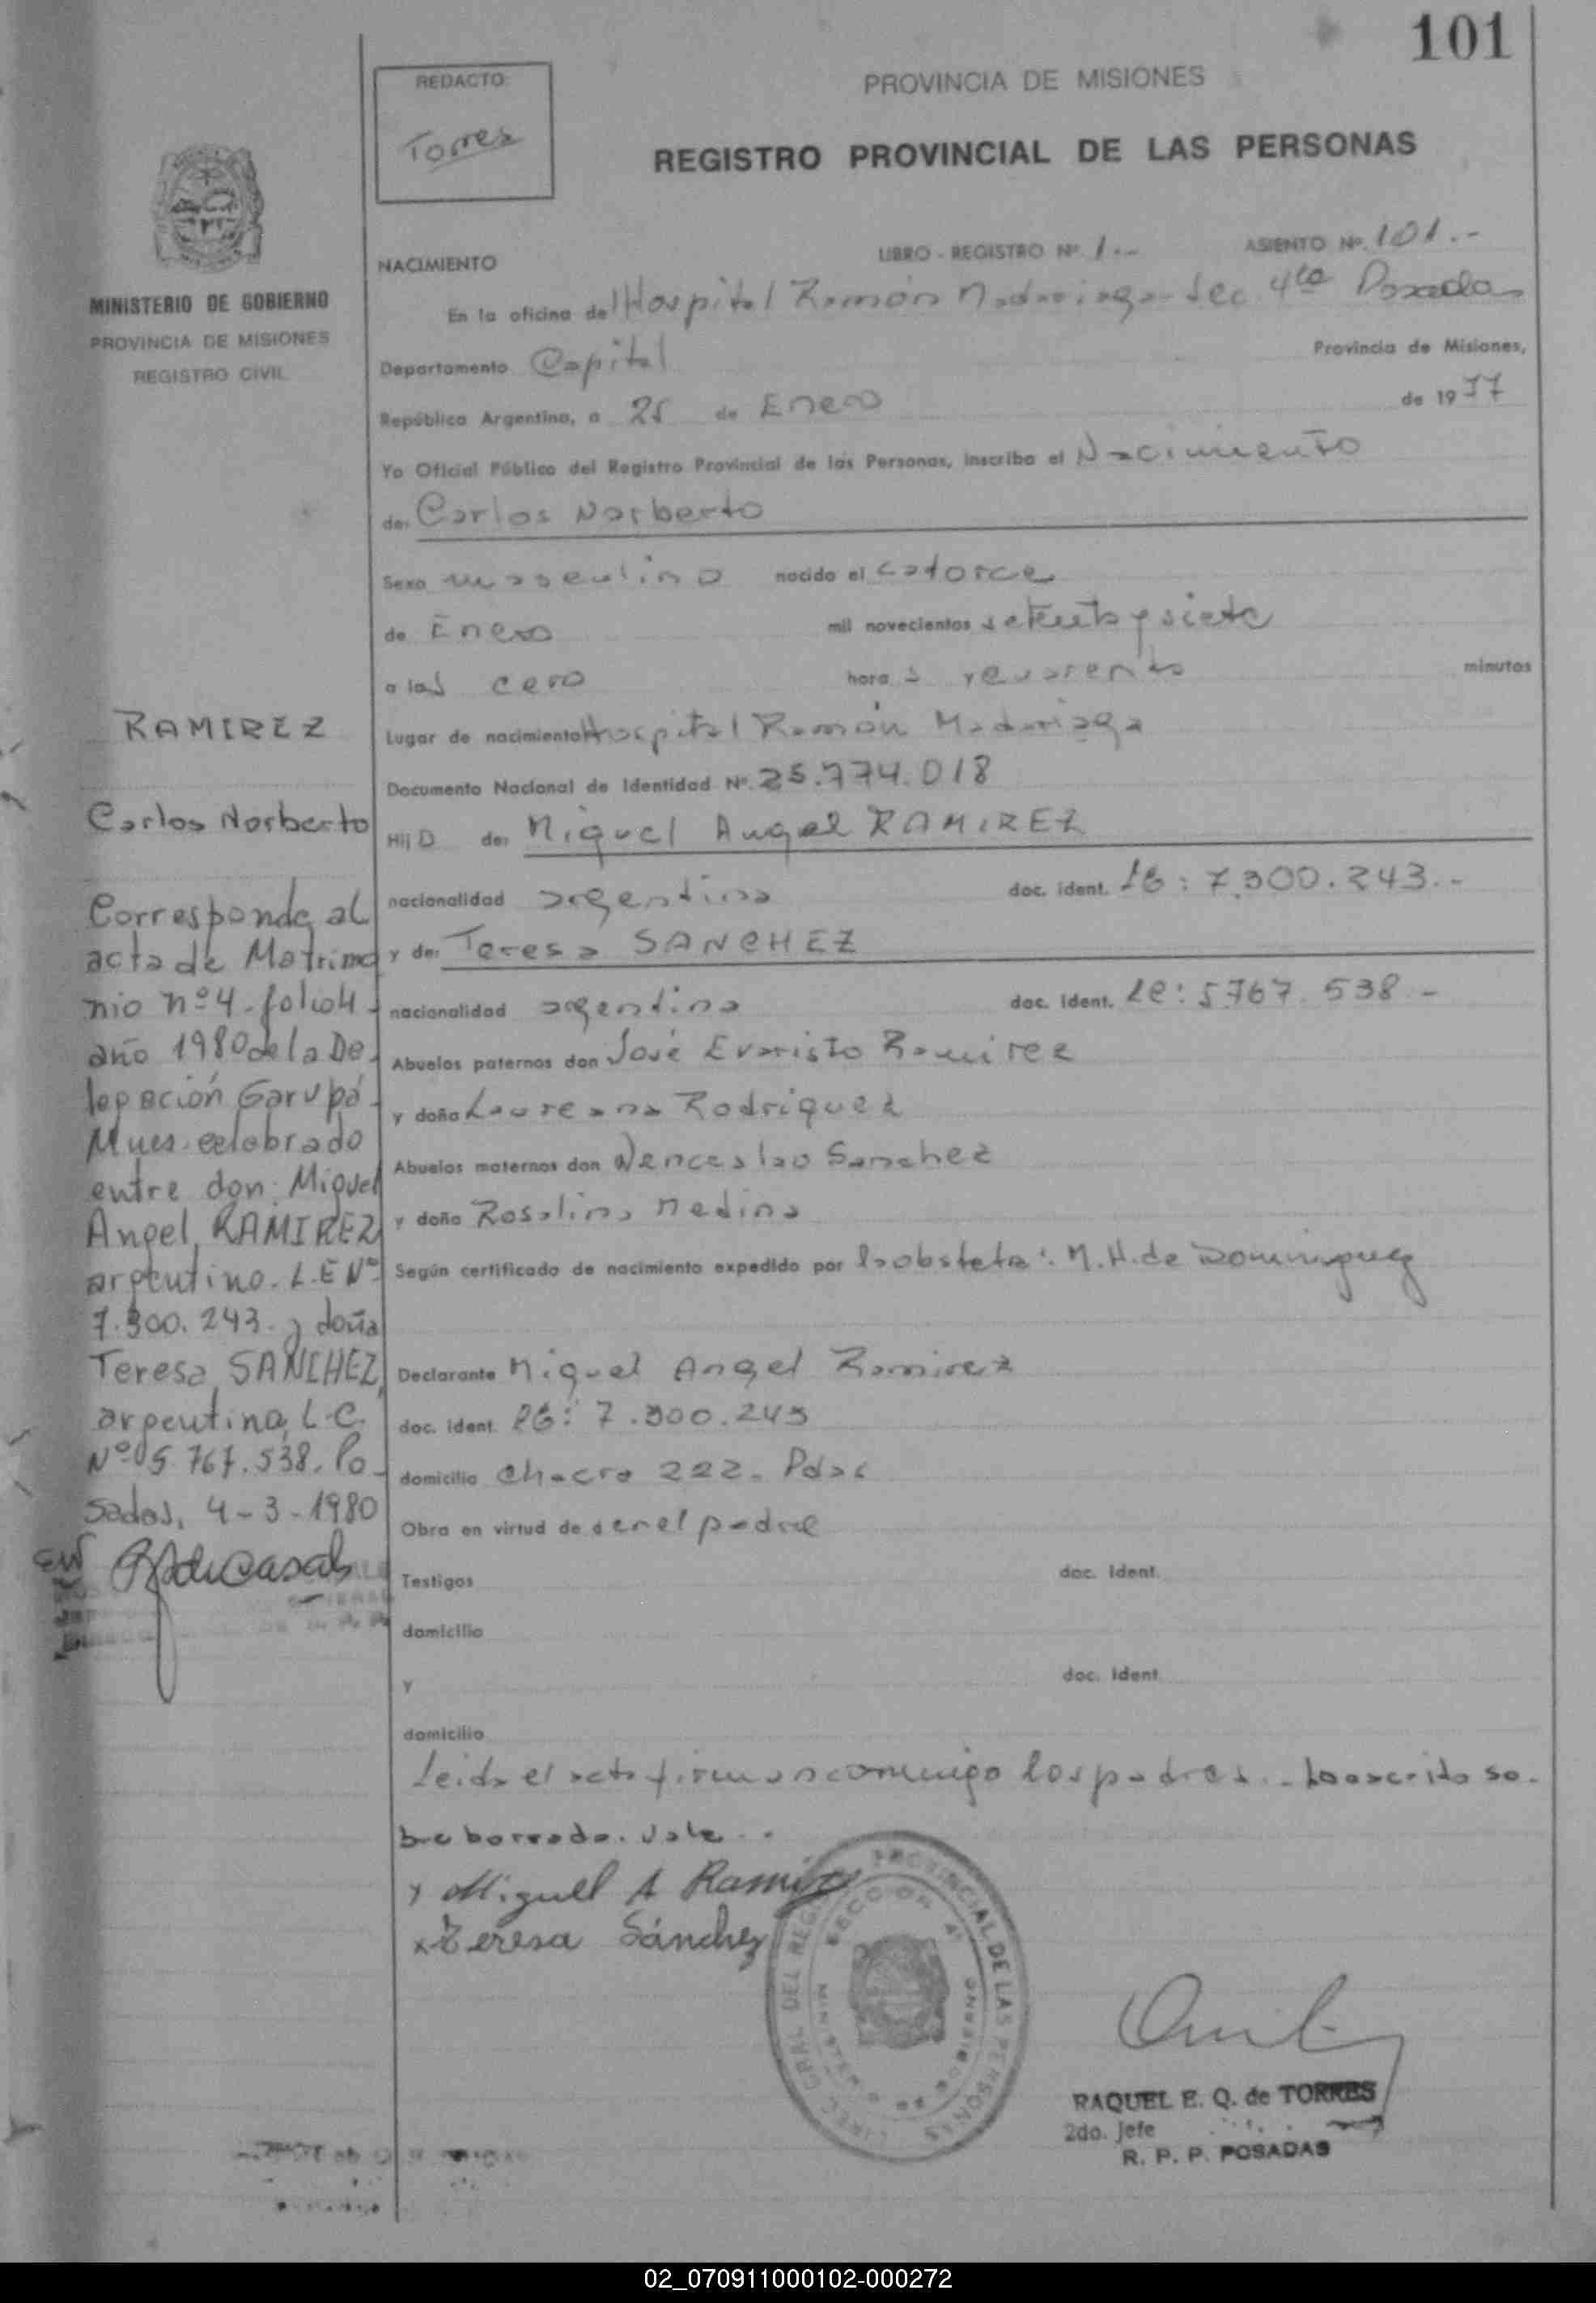 101
REDACTO
Torres
PROVINCIA DE MISIONES
REGISTRO PROVINCIAL DE LAS PERSONAS
NACIMIENTO
LIBRO - REGISTRO Nº 1.-- ASIENTO Nº 101.--
MINISTERIO DE GOBIERNO
PROVINCIA DE MISIONES
REGISTRO CIVIL
En la oficina del Hospital Ramón Madariaga - Sec. 4ta Posadas
Departamento Capital Provincia de Misiones,
República Argentina, a 25 de Enero de 1977
Yo Oficial Público del Registro Provincial de las Personas, inscribo el Nacimiento
de: Carlos Norberto
Sexo masculino nacido el catorce
de Enero mil novecientos setenta y siete
a las cero horas y minutos
Lugar de nacimiento Hospital Ramón Madariaga
Documento Nacional de Identidad Nº. 25.774.018
Hijo de: Miguel Angel RAMIREZ
nacionalidad argentina doc. ident. LE: 7.300.243.-
y de: Teresa SANCHEZ
nacionalidad argentina doc. ident. LC: 5.767.538 -
Abuelos paternos don José Evaristo Ramirez
y doña Laureana Rodriguez
Abuelos maternos don Wenceslao Sanchez
y doña Rosalina Medina
Según certificado de nacimiento expedido por la obstetra: M. H. de Dominguez
Declarante Miguel Angel Ramirez
doc. ident. LE: 7.300.243
domicilio Chacra 222. Pdas
Obra en virtud de ser el padre
Testigos doc. ident.
domicilio
y doc. ident.
domicilio
Leida el acta firman conmigo los padres.- Lo escrito so-
bre borrado. Vale..
x Miguel A Ramirez
x Teresa Sánchez
RAMIREZ
Carlos Norberto
Corresponde al
acta de Matrimo
nio nº 4 - folio 4 -
año 1980 de la De-
legación Garupá -
Mnes. celebrado
entre don: Miguel
Angel RAMIREZ
argentino. L.E Nº
7.300.243. y doña
Teresa SANCHEZ,
argentina, L.C.
Nº 05.767.538. Po-
sadas, 4-3-1980
DIREC. GRAL. DEL REGISTRO PROVINCIAL DE LAS PERSONAS
SECCION 4ª
MINISTERIO DE GOBIERNO
RAQUEL E. Q. de TORRES
2do. Jefe
R. P. P. POSADAS
02_070911000102-000272